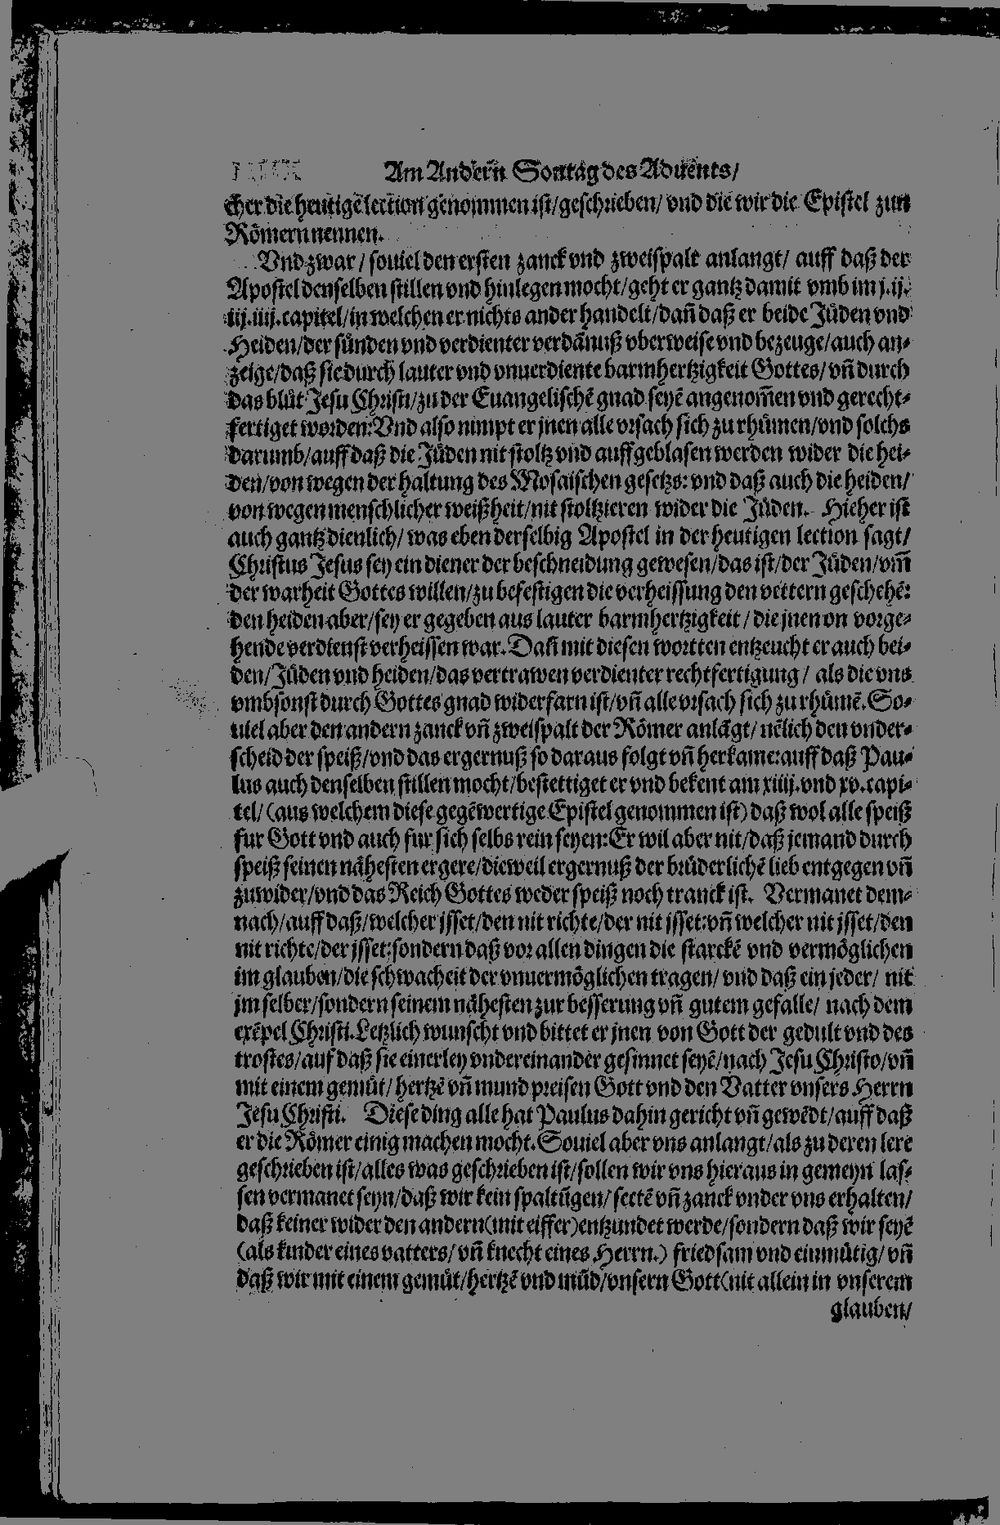 Am Andern̄ Sontag des Aduents/
cher die heutigē lection genommen ist/geschrieben/ vnd die wir die Epistel zun
Römern nennen.
Vnd zwar/ souiel den ersten zanck vnd zweispalt anlangt/ auff daß der
Apostel denselben stillen vnd hinlegen mocht/geht er gantz damit vmb im j.ij.
iij.iiij.capitel/in welchen er nichts ander handelt/dañ daß er beide Jüden vnd
Heiden/der sünden vnd verdienter verdānuß vberweise vnd bezeuge/auch an⸗
zeige/daß sie durch lauter vnd vnuerdiente barmhertzigkeit Gottes/ vñ durch
das blůt Jesu Christi/zu der Euangelischē gnad seyē angenom̄en vnd gerecht⸗
fertiget worden:Vnd also nimpt er jnen alle vrsach sich zu rhümen/vnd solchs
darumb/auff daß die Jüden nit stoltz vnd auffgeblasen werden wider die hei⸗
den/von wegen der haltung des Mosaischen gesetzs: vnd daß auch die heiden/
von wegen menschlicher weißheit/nit stoltzieren wider die Jüden. Hieher ist
auch gantz dienlich/ was eben derselbig Apostel in der heutigen lection sagt/
Christus Jesus sey ein diener der beschneidung gewesen/das ist/der Jüden/vm̄
der warheit Gottes willen/zu befestigen die verheissung den vettern geschehē:
den heiden aber/sey er gegeben aus lauter barmhertzigkeit/ die jnen on vorge⸗
hende verdienst verheissen war. Dañ mit diesen wortten entzeucht er auch bei⸗
den/Jüden vnd heiden/das vertrawen verdienter rechtfertigung/ als die vns
vmbsonst durch Gottes gnad widerfarn ist/vñ alle vrsach sich zu rhümē. So⸗
uiel aber den andern zanck vñ zweispalt der Römer anlāgt/ nēlich den vnder⸗
scheid der speiß/vnd das ergernuß so daraus folgt vñ herkame:auff daß Pau⸗
lus auch denselben stillen mocht/bestettiget er vnd bekent am xiiij.vnd xv.capi⸗
tel/(aus welchem diese gegēwertige Epistel genommen ist) daß wol alle speiß
fur Gott vnd auch fur sich selbs rein seyen:Er wil aber nit/daß jemand durch
speiß seinen nähesten ergere/dieweil ergernuß der brüderlichē lieb entgegen vñ
zuwider/vnd das Reich Gottes weder speiß noch tranck ist. Vermanet dem⸗
nach/auff daß/welcher jsset/den nit richte/der nit jsset:vñ welcher nit jsset/den
nit richte/der jsset:sondern daß vor allen dingen die starckē vnd vermöglichen
im glauben/die schwacheit der vnuermöglichen tragen/ vnd daß ein jeder/ nit
jm selber/sondern seinem nähesten zur besserung vñ gutem gefalle/ nach dem
exēpel Christi.Letzlich wunscht vnd bittet er jnen von Gott der gedult vnd des
trostes/auf daß sie einerley vndereinander gesinnet seyē/nach Jesu Christo/vñ
mit einem gemüt/ hertzē vñ mund preisen Gott vnd den Vatter vnsers Herrn
Jesu Christi. Diese ding alle hat Paulus dahin gericht vñ gewēdt/auff daß
er die Römer einig machen mocht.Souiel aber vns anlangt/als zu deren lere
geschrieben ist/alles was geschrieben ist/sollen wir vns hieraus in gemeyn las⸗
sen vermanet seyn/daß wir kein spaltūgen/ sectē vñ zanck vnder vns erhalten/
daß keiner wider den andern(mit eiffer)entzundet werde/sondern daß wir seyē
(als kinder eines vatters/vñ knecht eines Herrn.) friedsam vnd einmütig/ vñ
daß wir mit einem gemüt/hertzē vnd mūd/vnsern Gott(nit allein in vnserem
glauben/